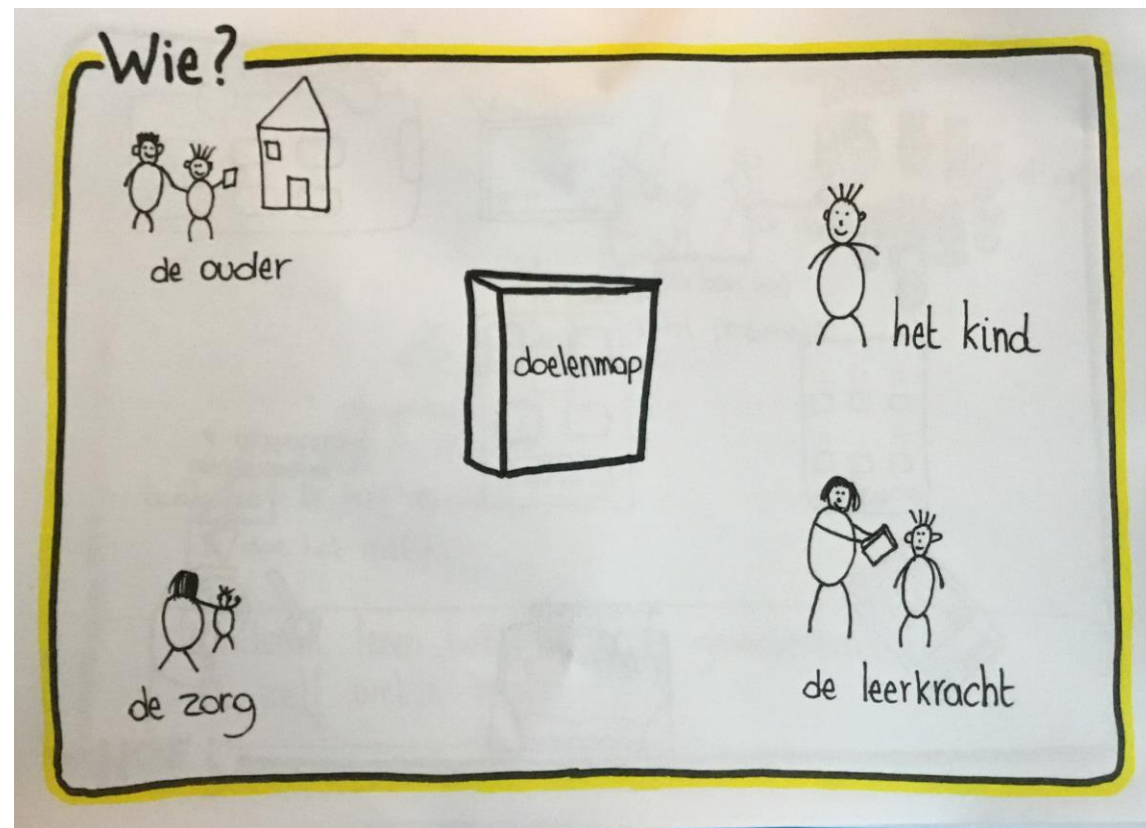 Wie?
de ouder
doelenmap
het kind
de zorg
de leerkracht